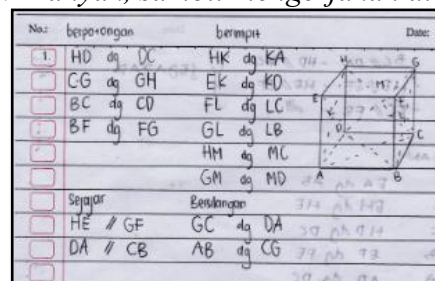 No.: berpotongan berimpit Date:
1. HD dg DC HK dg KA
CG dg GH EK dg KD
BC dg CD FL dg LC
BF dg FG GL dg LB
HM dg MC
GM dg MD
Sejajar Bersilangan
HE // GF GC dg DA
DA // CB AB dg CG
H G
M
E
K
D C
A B